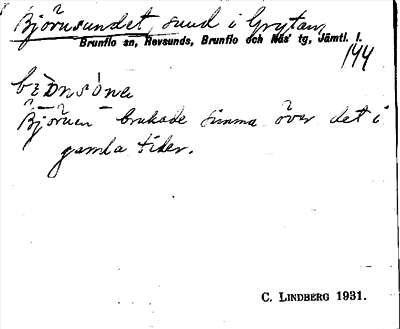 Björnsundet, sund i Grytan,
Brunflo sn, Revsunds, Brunflo och Näs' tg, Jämtl. l.
144
Björnen brukade simma över det i
gamla tider.
C. LINDBERG 1931.